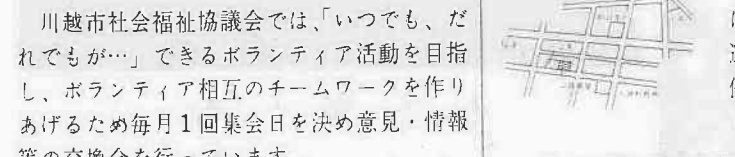 川越市社会福祉協議会では、「いつでも、だ
れでもが…」できるボランティア活動を目指
し、ボランティア相互のチームワークを作り
あげるため毎月1回集会日を決め意見・情報
等の交換会を行っています。